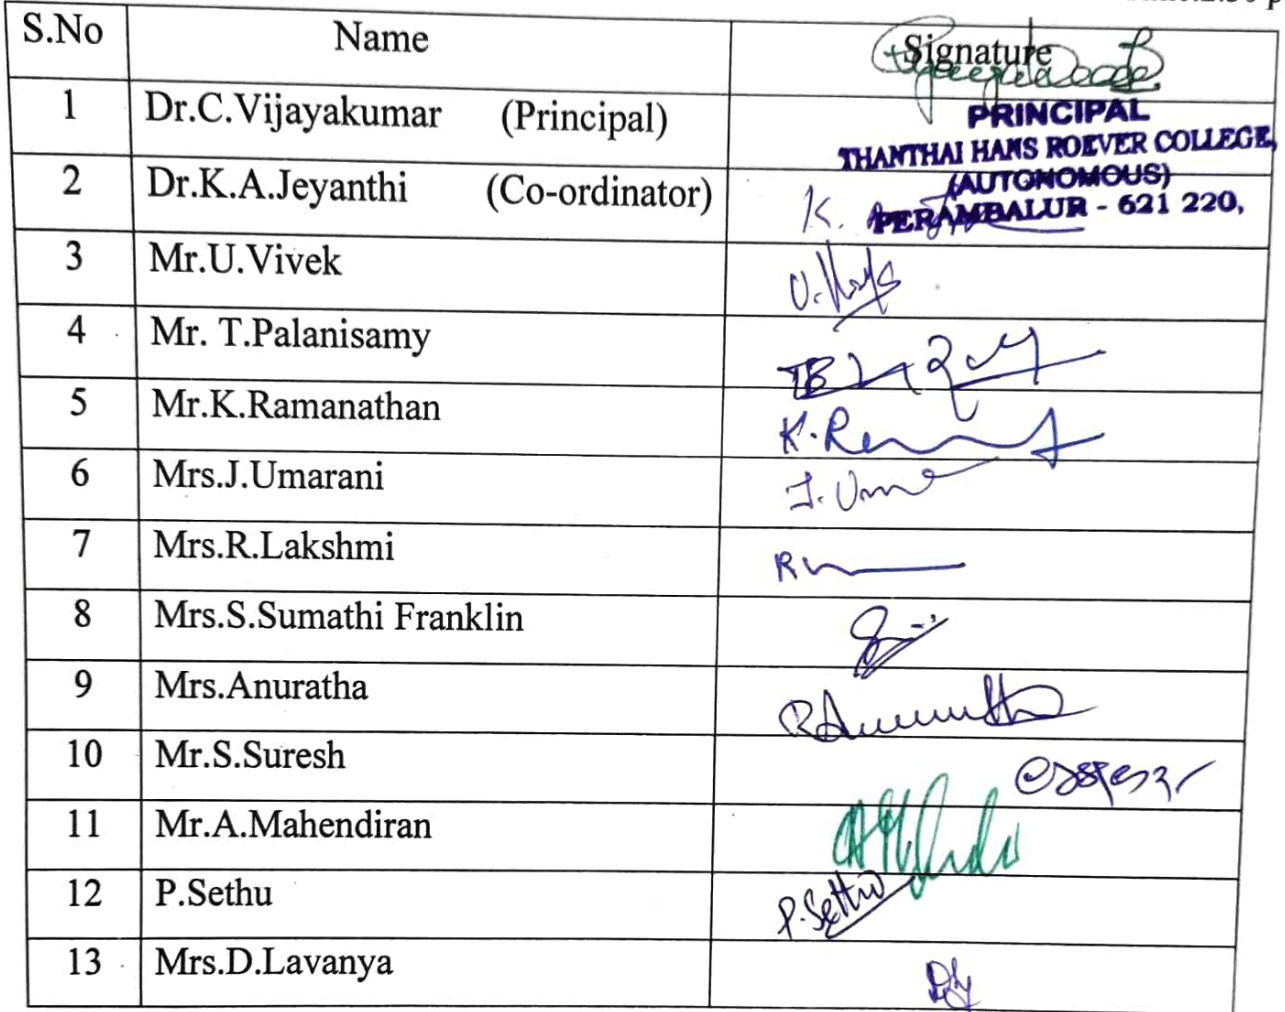 S.No Name Signature
1 Dr.C.Vijayakumar (Principal)
PRINCIPAL
THANTHAI HANS ROEVER COLLEGE,
(AUTONOMOUS)
PERAMBALUR - 621 220,
2 Dr.K.A.Jeyanthi (Co-ordinator) K.
3 Mr.U.Vivek
4 Mr. T.Palanisamy
5 Mr.K.Ramanathan
6 Mrs.J.Umarani
7 Mrs.R.Lakshmi
8 Mrs.S.Sumathi Franklin
9 Mrs.Anuratha
10 Mr.S.Suresh
11 Mr.A.Mahendiran
12 P.Sethu P.Sethu
13 Mrs.D.Lavanya